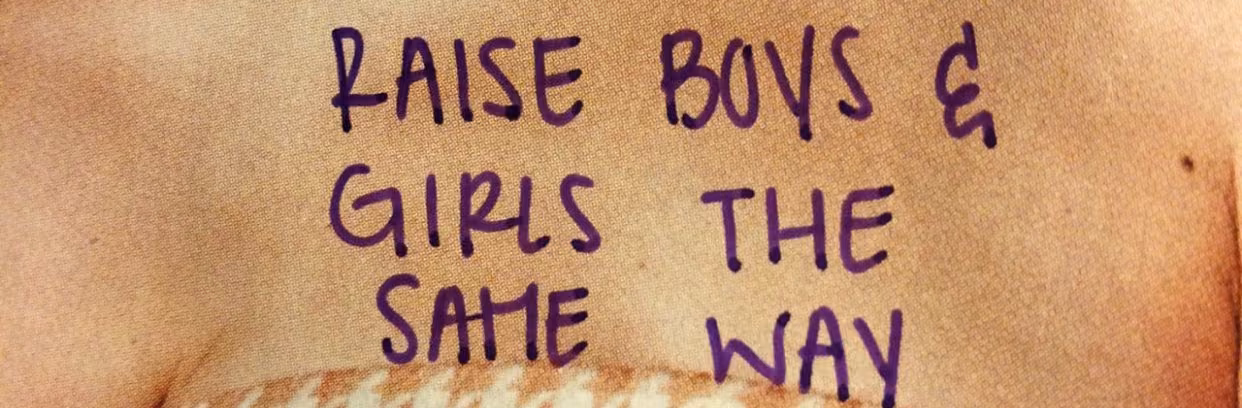 RAISE BOYS &
GIRLS THE
SAME WAY